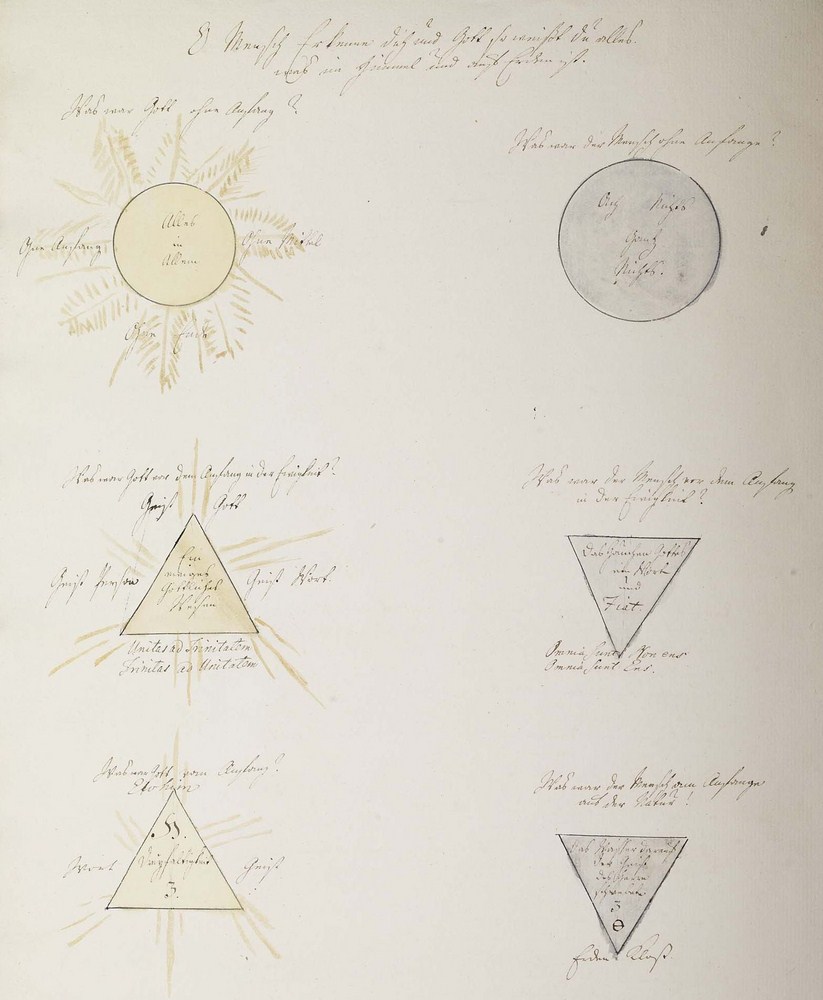 O Mensch Erkenne dich und Gott, so weißt du alles
was im Himmel und auf Erden ist.
Was war Gott ohne Anfang?
Alles
in
Allem
Ohne Anfang
Ohne Mittel
Ohne Ende
Was war der Mensch ohne Anfange?
Nichts
Gantz
Nichts.
Was war Gott vor dem Anfang in der Ewigkeit?
Geist Gott
Geist Person
Ein
einiges
Göttliches
Wesen
Geist Wort
Unitas ad Trinitatem
Trinitas ad Unitatem
Was war der Mensch vor dem Anfang
in der Ewigkeit?
Das Gottes
im Wort
und
Fiat.
Omnia sunt Non ens
Omnia sunt Ens.
Was war Gott vom Anfang?
Elohim
Wort
Dreyfaltigkeit
3.
Geist
Was war der Mensch am Anfange
aus der Natur!
Das Wasser darauf
der Geist
des Herrn
schwebete
3
Θ
Erden Kloß.